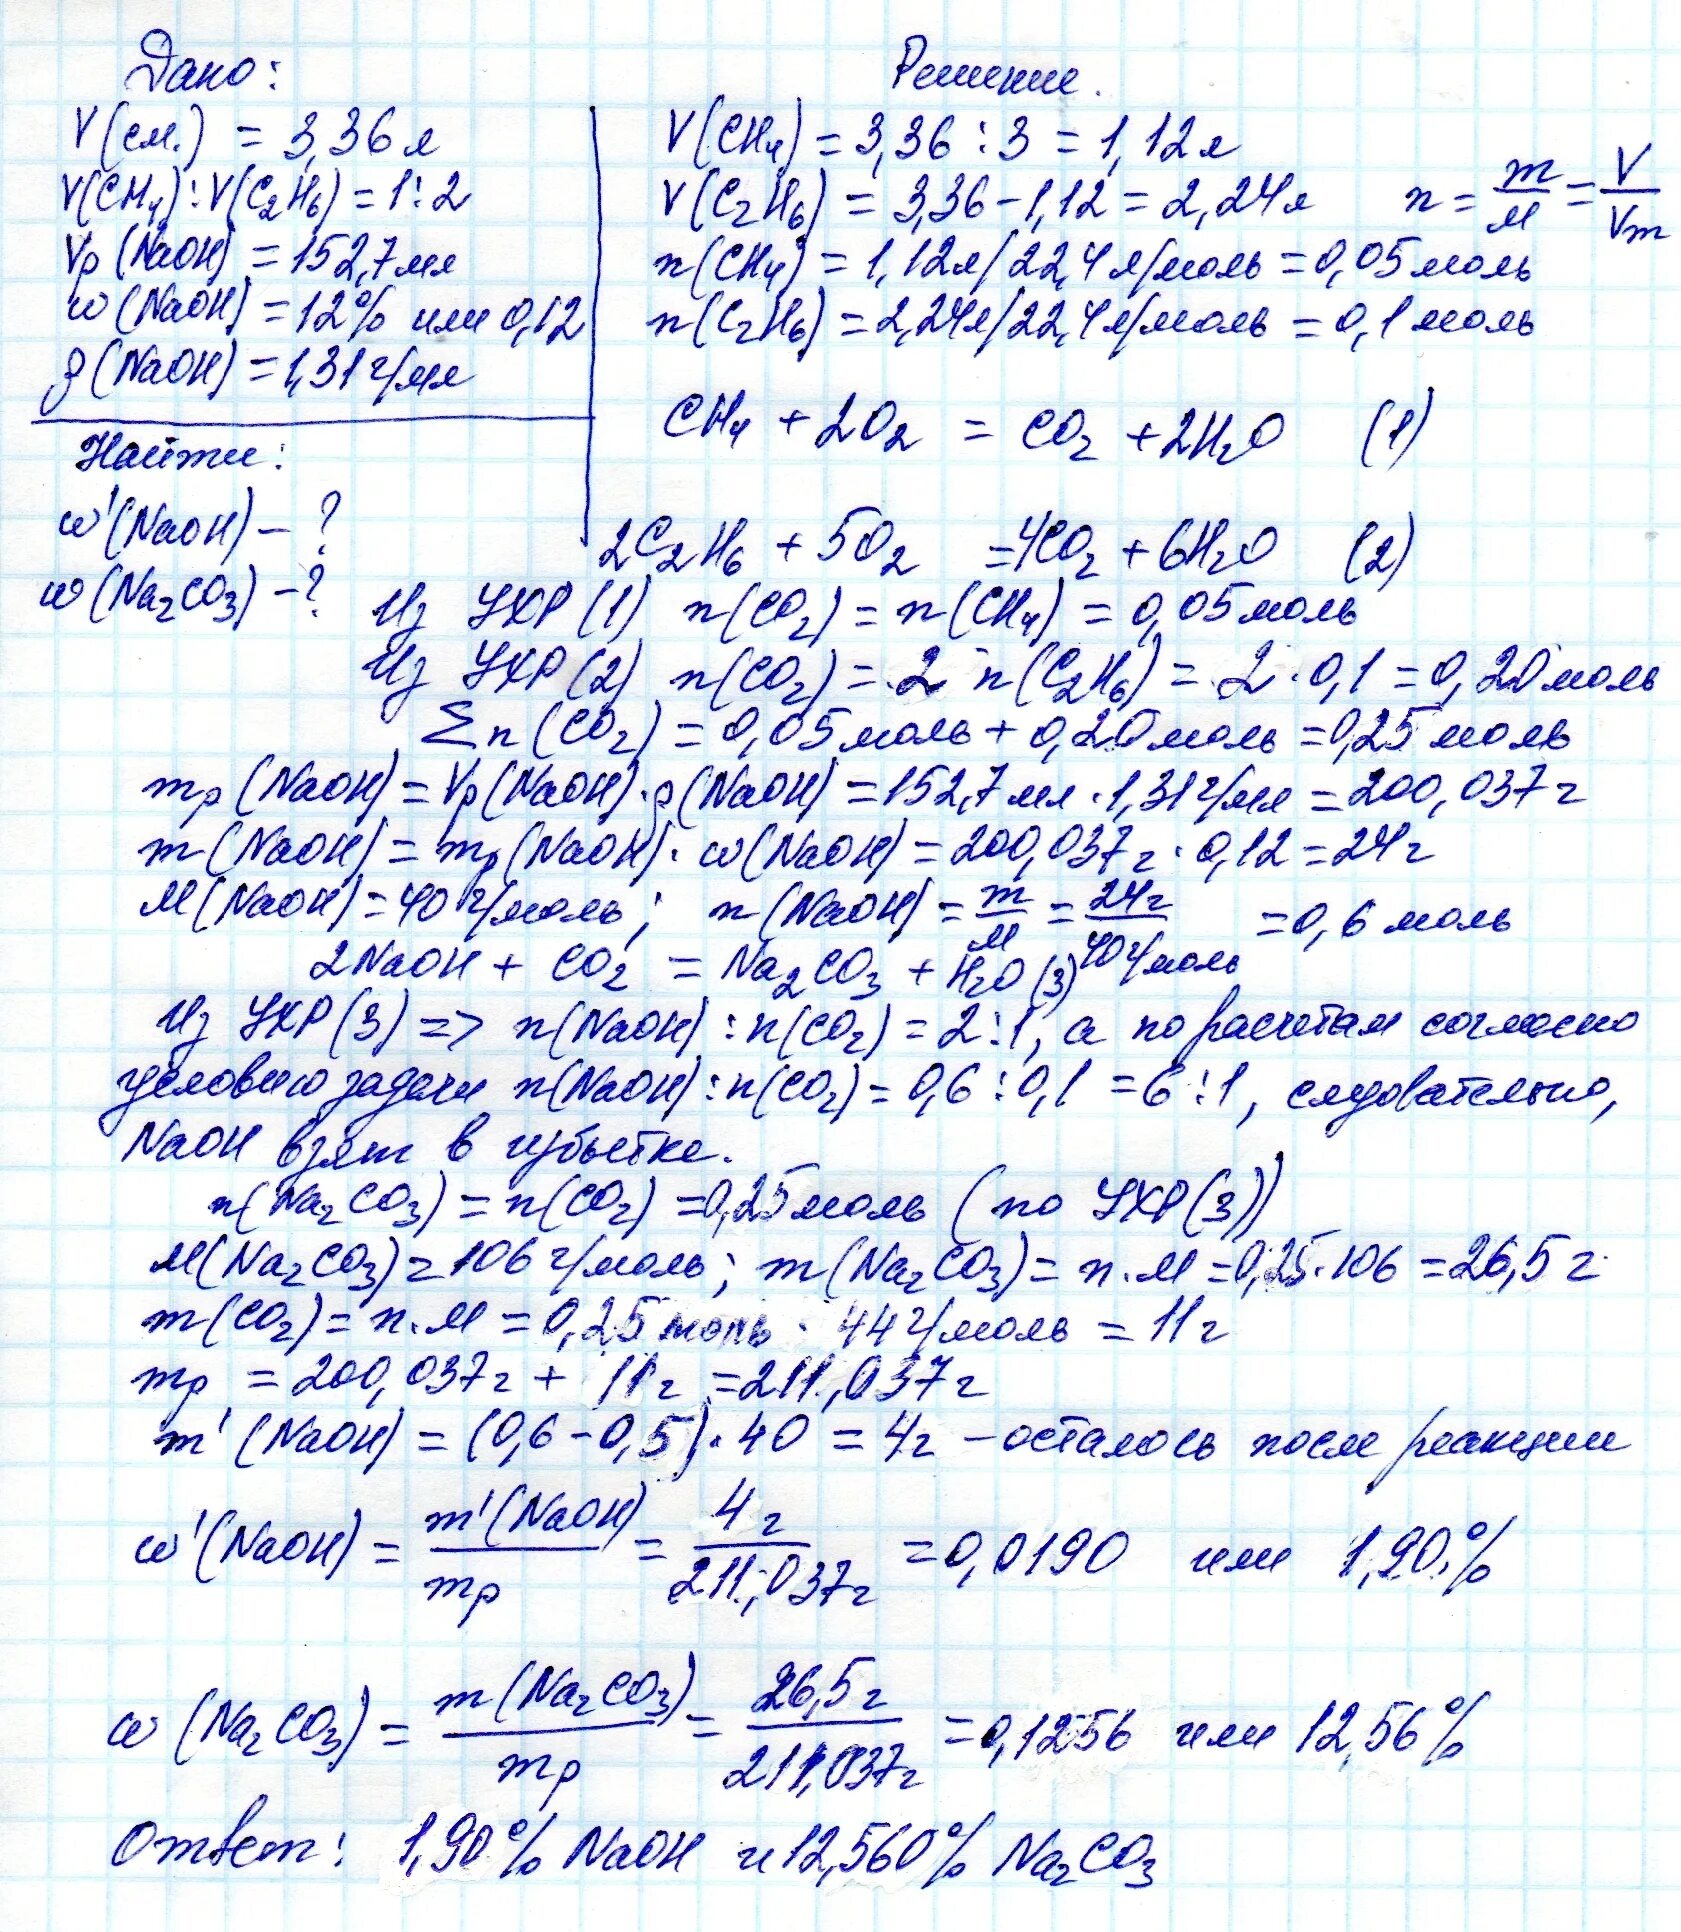 Дано:
V(см.) = 3,36 л
V(CH₄):V(C₂H₆) = 1:2
Vр(NaOH) = 152,7 мл
w(NaOH) = 12% или 0,12
ρ(NaOH) = 1,31 г/мл
Найти:
w'(NaOH) – ?
w(Na₂CO₃) – ?
Решение.
V(CH₄) = 3,36 : 3 = 1,12 л
V(C₂H₆) = 3,36 – 1,12 = 2,24 л n = m/M = V/Vm
n(CH₄) = 1,12 л/22,4 л/моль = 0,05 моль
n(C₂H₆) = 2,24 л/22,4 л/моль = 0,1 моль
CH₄ + 2O₂ = CO₂ + 2H₂O (1)
2C₂H₆ + 5O₂ = 4CO₂ + 6H₂O (2)
Из УХР (1) n(CO₂) = n(CH₄) = 0,05 моль
Из УХР (2) n(CO₂) = 2 · n(C₂H₆) = 2 · 0,1 = 0,20 моль
Σn(CO₂) = 0,05 моль + 0,20 моль = 0,25 моль
mр(NaOH) = Vр(NaOH) · ρ(NaOH) = 152,7 мл · 1,31 г/мл = 200,037 г
m(NaOH) = mр(NaOH) · w(NaOH) = 200,037 г · 0,12 = 24 г
M(NaOH) = 40 г/моль; n(NaOH) = m/M = 24 г/40 г/моль = 0,6 моль
2NaOH + CO₂ = Na₂CO₃ + H₂O (3)
Из УХР (3) => n(NaOH) : n(CO₂) = 2 : 1, а по расчетам согласно
условию задачи n(NaOH) : n(CO₂) = 0,6 : 0,1 = 6 : 1, следовательно,
NaOH взят в избытке.
n(Na₂CO₃) = n(CO₂) = 0,25 моль (по УХР(3))
M(Na₂CO₃) = 106 г/моль; m(Na₂CO₃) = n · M = 0,25 · 106 = 26,5 г
m(CO₂) = n · M = 0,25 моль · 44 г/моль = 11 г
mр = 200,037 г + 11 г = 211,037 г
m'(NaOH) = (0,6 – 0,5) · 40 = 4 г – осталось после реакции
w'(NaOH) = m'(NaOH)/mр = 4 г/211,037 г = 0,0190 или 1,90%
w(Na₂CO₃) = m(Na₂CO₃)/mр = 26,5 г/211,037 г = 0,1256 или 12,56%
Ответ: 1,90% NaOH и 12,560% Na₂CO₃